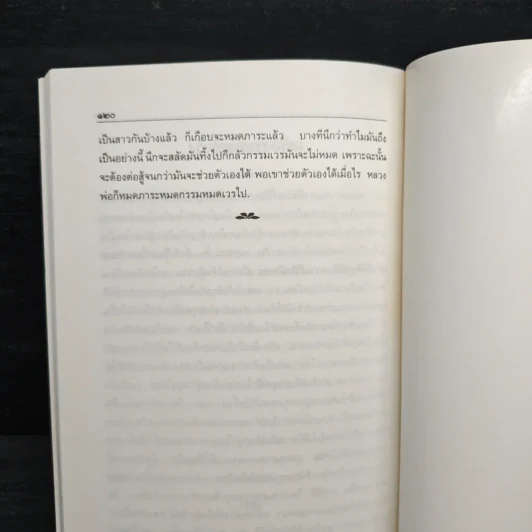 ๑๒๐
เป็นสาวกันบ้างแล้ว ก็เกือบจะหมดภาระแล้ว บางทีนึกว่าทำไมมันถึง
เป็นอย่างนี้ นึกจะสลัดมันทิ้งไปก็กลัวกรรมเวรมันจะไม่หมด เพราะฉะนั้น
จะต้องต่อสู้จนกว่ามันจะช่วยตัวเองได้ พอเขาช่วยตัวเองได้เมื่อไร หลวง
พ่อก็หมดภาระหมดกรรมหมดเวรไป.